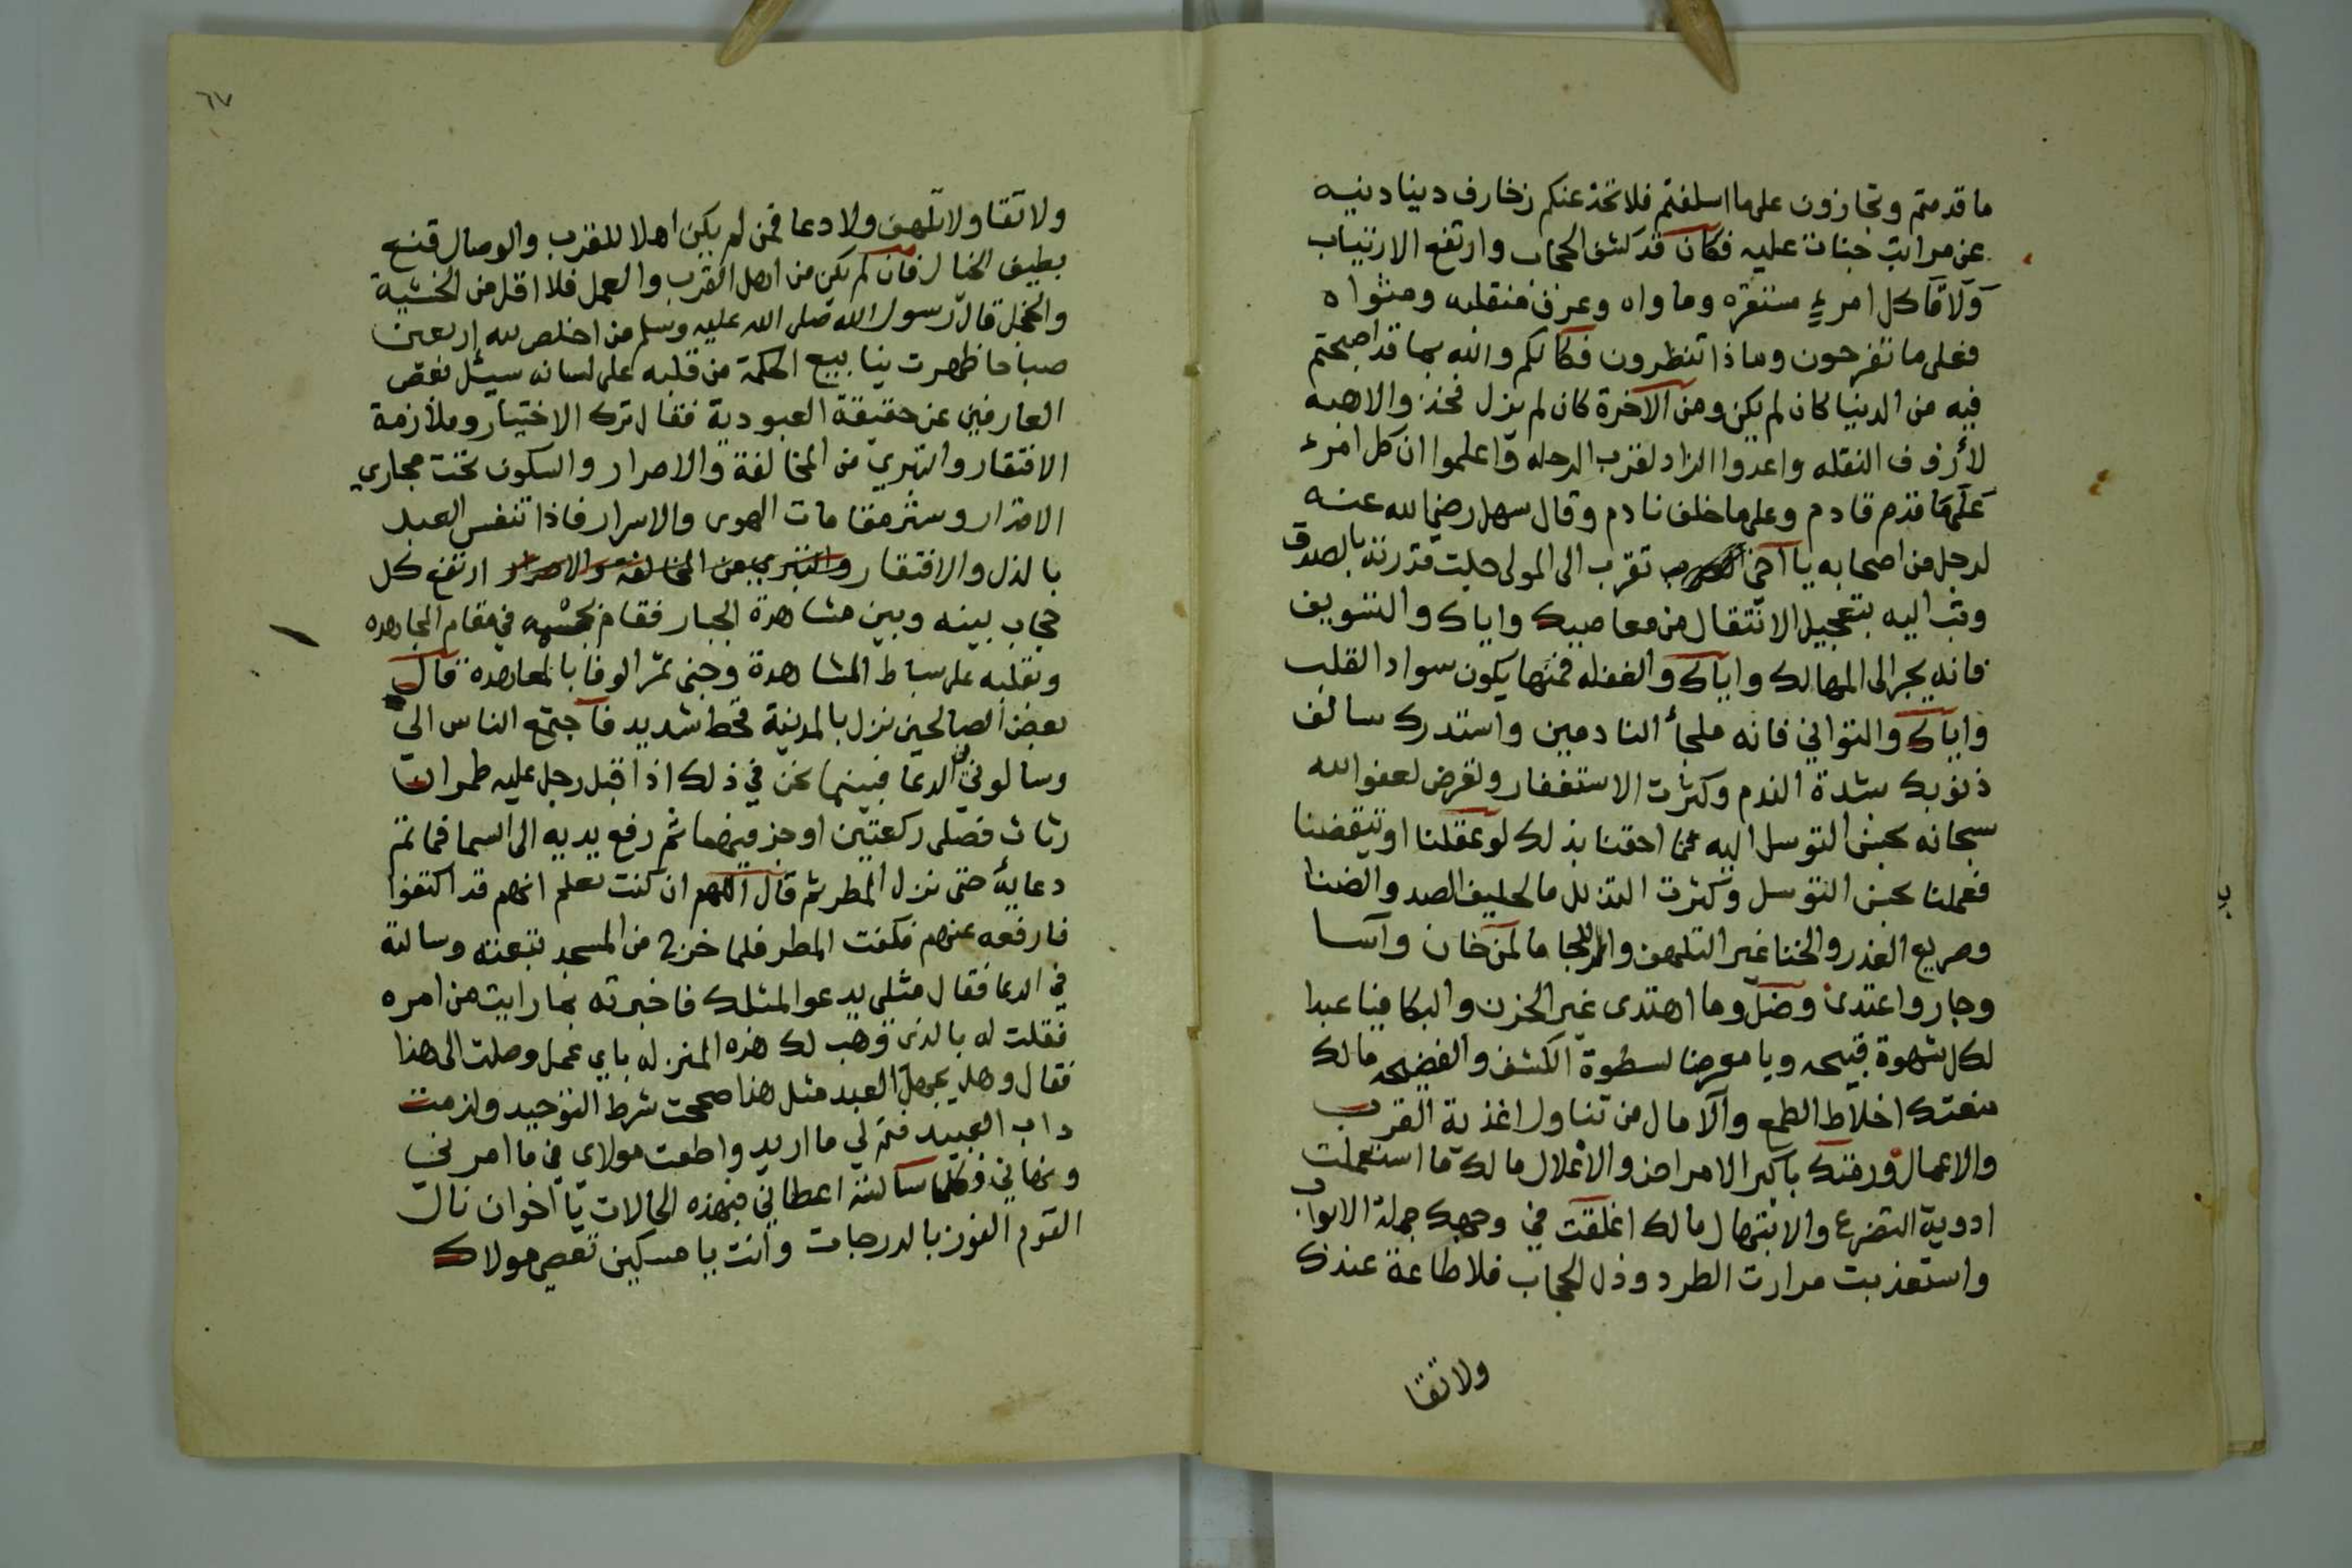 ما قدمتم وتجازون على ما اسلفتم فلا تخدعنكم زخارف دينا دنيه
عن مراتب جنات عليه فكان قد كشف الحجاب وارتفع الارتياب
ولاقا كل امرءٍ مستقره وماواه وعرف منقلبه ومثواه
فعلى ما تفرحون وماذا تنظرون فكانكم والله بما قد اصبحتم
فيه من الدنيا كان لم يكن ومن الآخرة كان لم يزل فخذوا الاهبه
لأزوف النقله واعدوا الزاد لقرب الرحله واعلموا ان كل امرء
على ما قدم قادم وعلى ما خلف نادم وقال سهل رضي الله عنه
لرجل من اصحابه يا اخي تقرب الى المولى جلت قدرته بالصدق
وتب اليه بتعجيل الانتقال من معاصيك واياك والتسويف
فانه يجر الى المهالك واياك والغفله فمنها يكون سواد القلب
واياك والتواني فانه ملجأ النادمين واستدرك سالف
ذنوبك بشدة الندم وكثرت الاستغفار وتعرض لعفو الله
سبحانه بحسن التوسل اليه فما احقنا بذلك لو عقلنا او تيقضنا
فعملنا بحسن التوسل وكثرت التذلل ما لحليف الصد والضنا
وصريع الغدر والخنا غير التلهف والالتجا ما لمن خان وآسا
وجار واعتدى وضل وما اهتدى غير الحزن والبكا فيا عبدا
لكل شهوة قبيحه ويا معرضا لسطوة الكشف والفضيحه مالك
منعتك اخلاط الطمع والآمال من تناول اغذية القرب
والاعمال ورمتك باكبر الامراض والاعلال مالك ما استعملت
ادوية التضرع والابتهال مالك اغلقت في وجهك جملة الابواب
واستعذبت مرارت الطرد وذل الحجاب فلا طاعة عندك
ولا تقا
٦٧
ولا تقا ولا تلهف ولا دعا فمن لم يكن اهلا للقرب والوصال قنع
بطيف الخيال فان لم يكن من اهل القرب والعمل فلا اقل من الخشية
والخجل قال رسول الله صلى الله عليه وسلم من اخلص لله اربعين
صباحا ظهرت ينابيع الحكمة من قلبه على لسانه سيئل بعض
العارفين عن حقيقة العبودية فقال ترك الاختيار وملازمة
الافتقار والتبري من المخالفة والاصرار والسكون تحت مجاري
الاقدار وستر مقامات الهوى والاسرار فاذا تنفس العبد
بالذل والافتقار والتبري من المخالفة والاصرار ارتفع كل
حجاب بينه وبين مشاهدة الجبار فقام بجسمه في مقام المجاهده
وبقلبه على بساط المشاهدة وجنى ثمر الوفا بالمعاهدة قال
بعض الصالحين نزل بالمدينة قحط شديد فاجتمع الناس الي
وسالوني الدعا فبينما نحن في ذلك اذ اقبل رجل عليه طمران
رثاث فصلى ركعتين اوجز فيهما ثم رفع يديه الى السما فما تم
دعايه حتى نزل المطر ثم قال اللهم ان كنت تعلم انهم قد اكتفوا
فارفعه عنهم فكفت المطر فلما خرج من المسجد تبعته وسالته
في الدعا فقال مثلي يدعو المثلك فاخبرته بما رايت من امره
فقلت له بالذي وهب لك هذه المنزله باي عمل وصلت الى هذا
فقال وهل يجهل العبد مثل هذا صححت شرط التوحيد ولزمت
داب العبيد فتم لي ما اريد واطعت مولاي في ما امرني
ونهاني فكلما سالته اعطاني فبهذه الحالات يا اخوان نال
القوم الفوز بالدرجات وانت يا مسكين تعصي مولاك